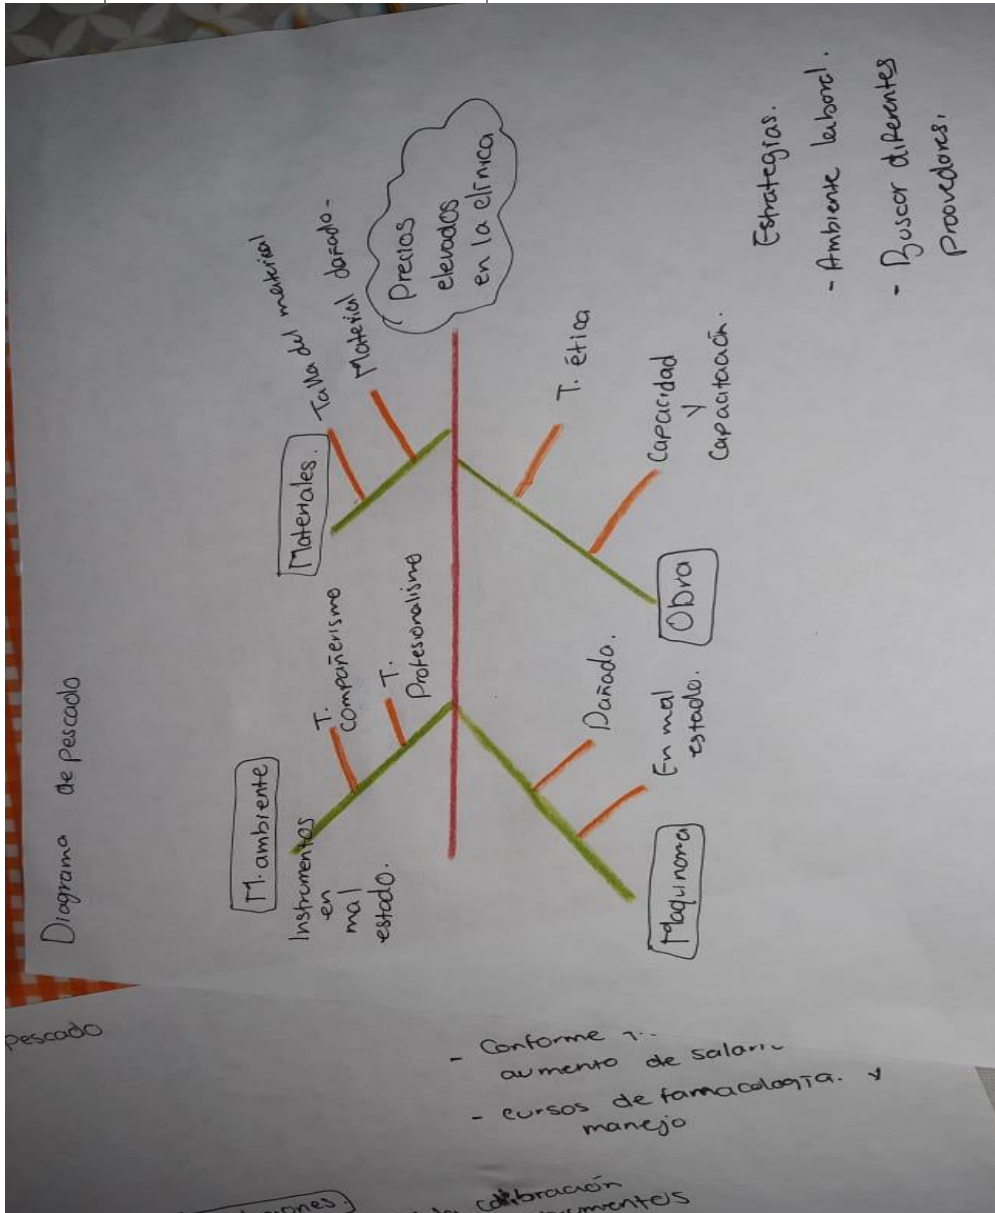 Diagrama de pescado
M. ambiente
Instrumentos
en
mal
estado.
T.
Compañerismo
T.
Profesionalismo
Materiales.
Talla del material
Material dañado-
Precios
elevados
en la clínica
Maquinora
Dañado.
En mal
estado.
Obra
T. ética
Capacidad
y
Capacitación.
Estrategias.
- Ambiente laboral.
- Buscar diferentes
proovedores.
pescado
- Conforme
aumento de
- cursos de famacología. y
manejo